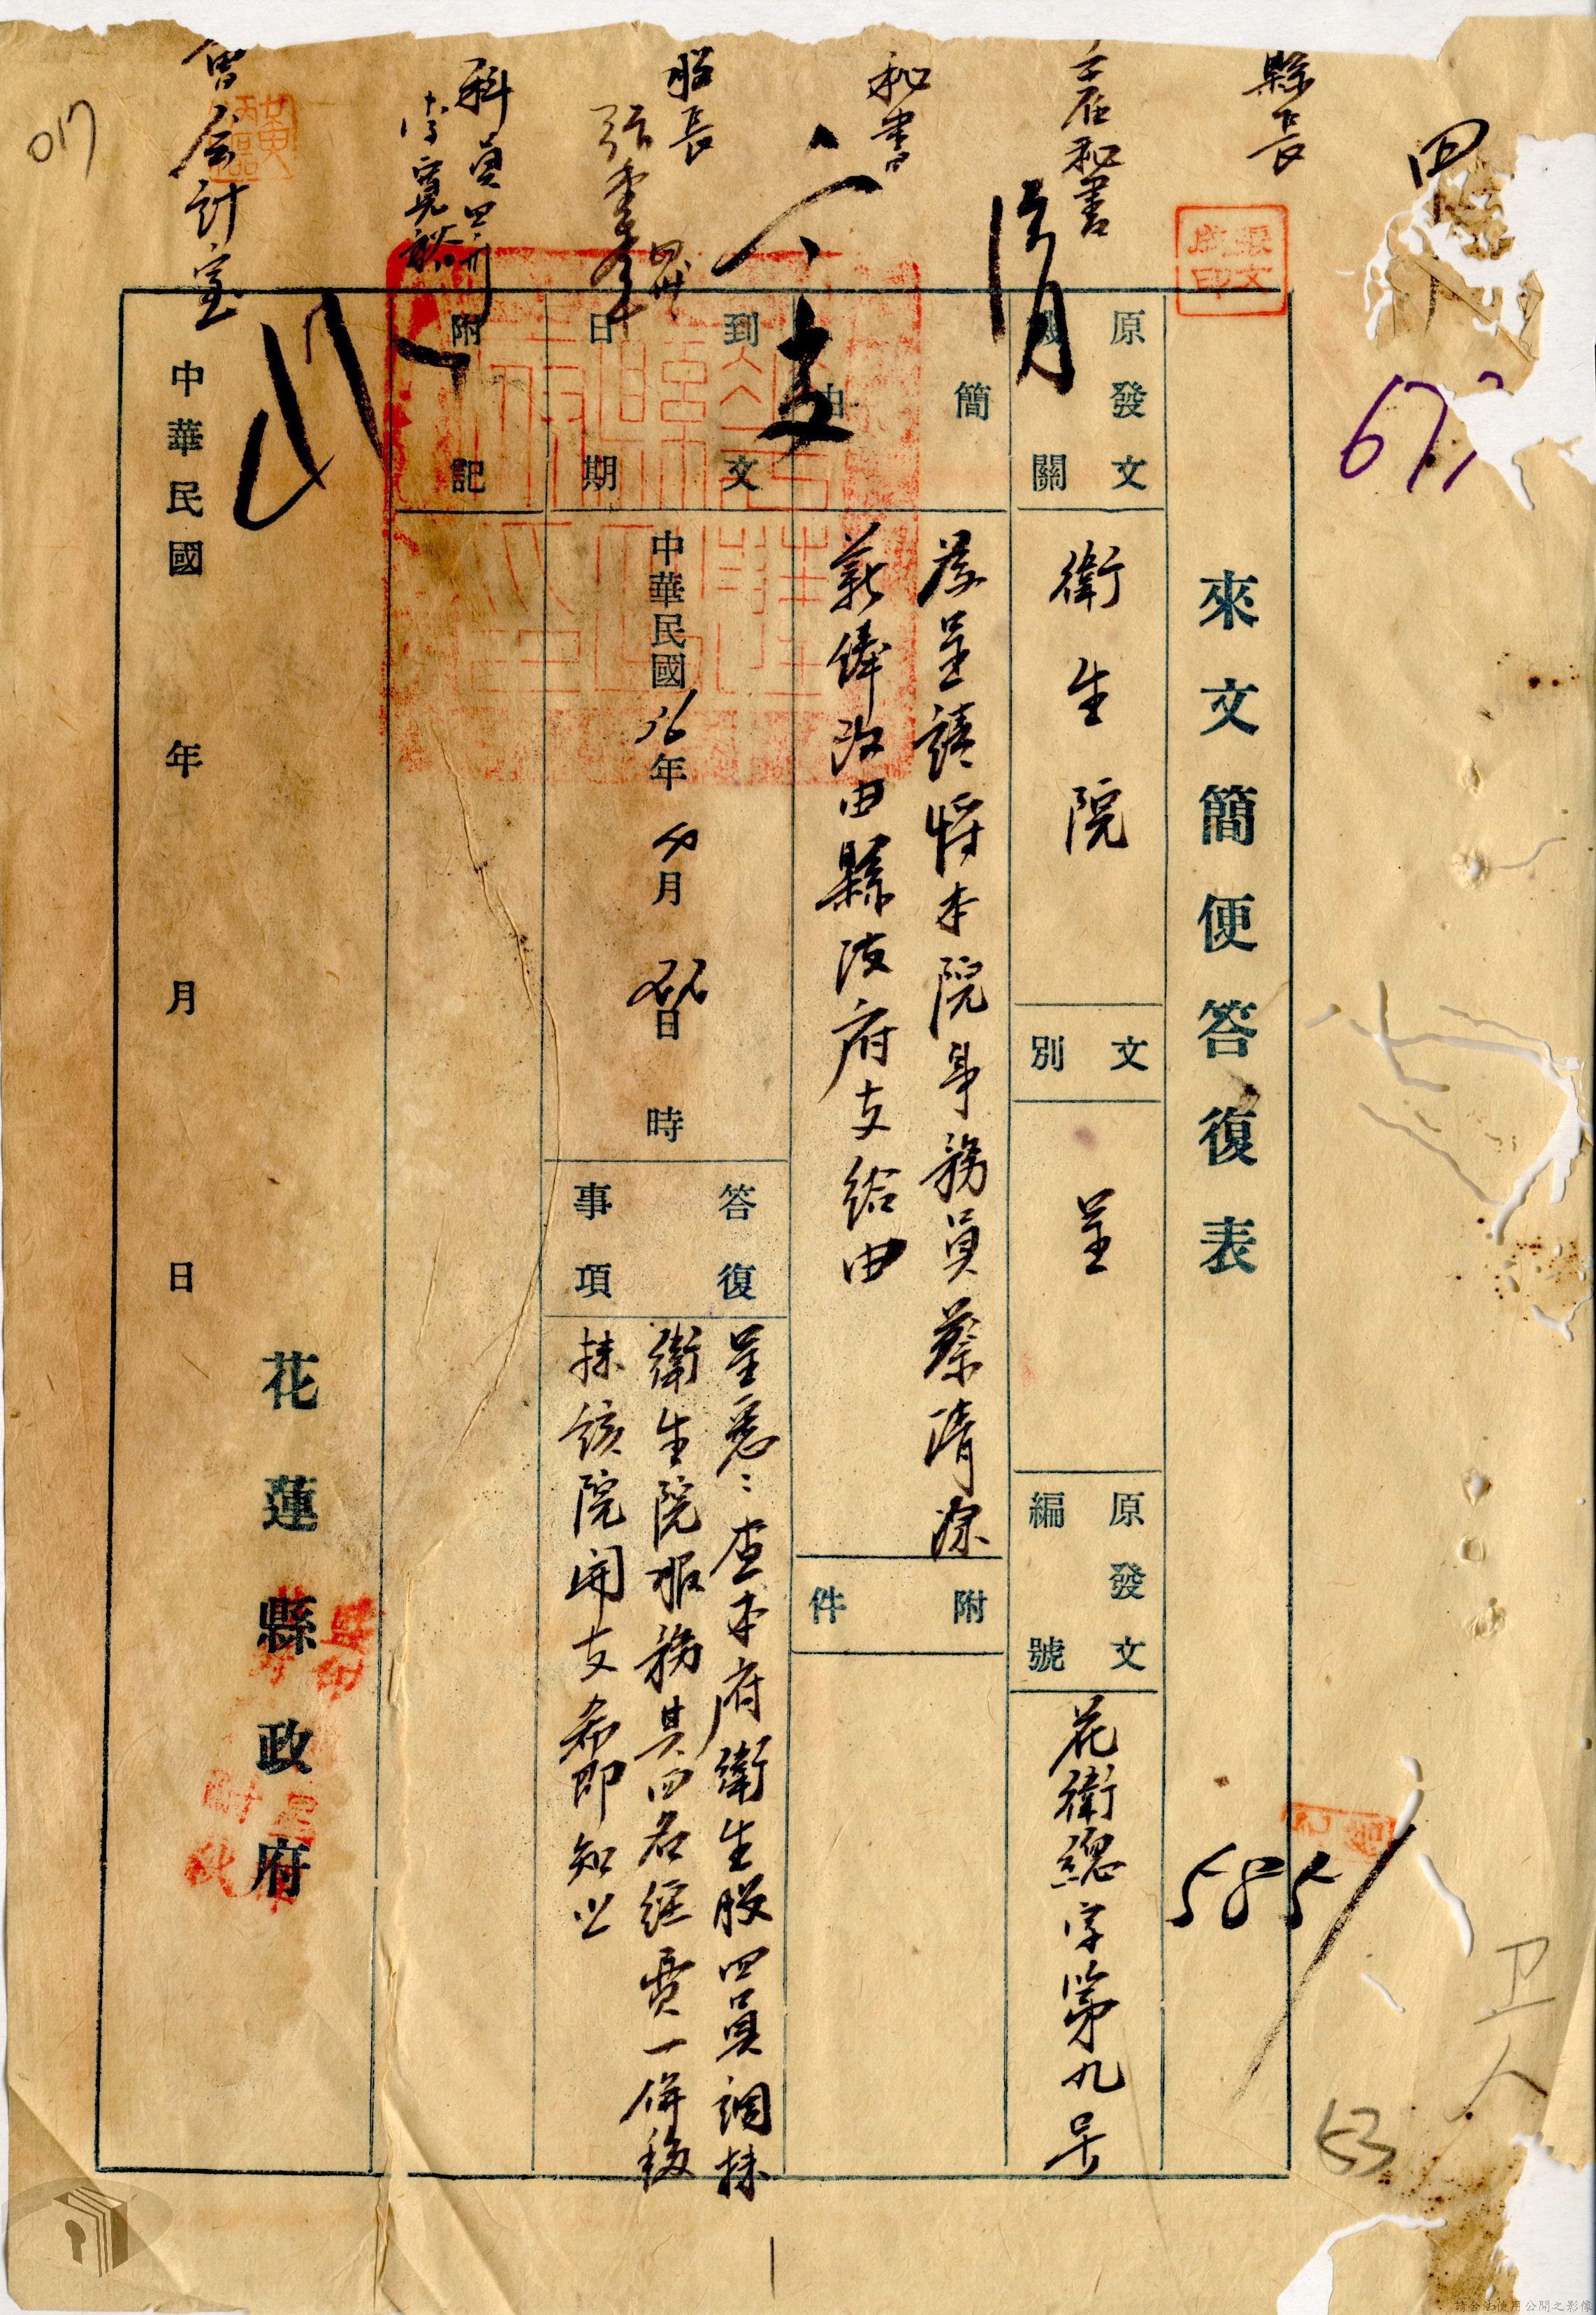 四
677
縣長
主任秘書
秘書
股長
科員
會會計室
017
來文簡便答復表
585
原發文機關
衛生院
文別
呈
原發文編號
花衛總字第九号
簡由
為呈請將本院事務員蔡清
薪俸改由縣政府支給由
附件
到文日期
中華民國36年 月 日 時
答復事項
呈悉:查本府衛生股四員調撥
衛生院服務其四名經費一併移
撥該院開支希即知照
附記
花蓮縣政府
中華民國 年 月 日
卫人
53
請合法使用公開之影像